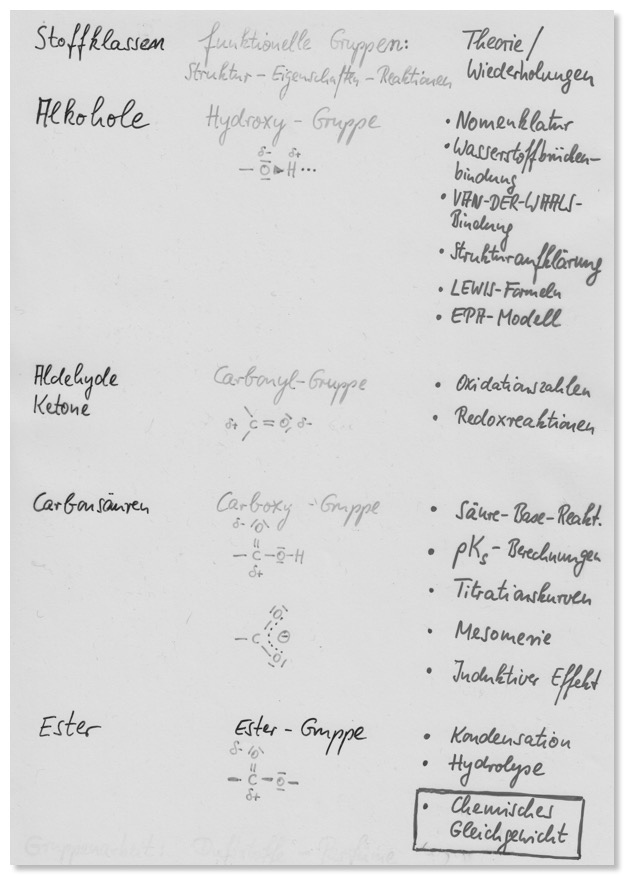 Stoffklassen
funktionelle Gruppen:
Struktur - Eigenschaften - Reaktionen
Theorie/
Wiederholungen
Alkohole
Hydroxy - Gruppe
δ- δ+
- O H ...
• Nomenklatur
• Wasserstoffbrücken-
bindung
• VAN-DER-WAALS-
Bindung
• Strukturaufklärung
• LEWIS-Formeln
• EPA-Modell
Aldehyde
Ketone
Carbonyl-Gruppe
δ+ C = O δ-
• Oxidationszahlen
• Redoxreaktionen
Carbonsäuren
Carboxy - Gruppe
δ- |O|
- C - O - H
δ+
|O|
- C ⊖
O|
• Säure-Base-Reakt.
• pKs - Berechnungen
• Titrationskurven
• Mesomerie
• Induktiver Effekt
Ester
Ester - Gruppe
δ- |O|
- C - O -
δ+
• Kondensation
• Hydrolyse
• Chemisches
Gleichgewicht